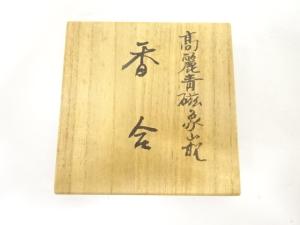 高麗青磁象嵌
香合